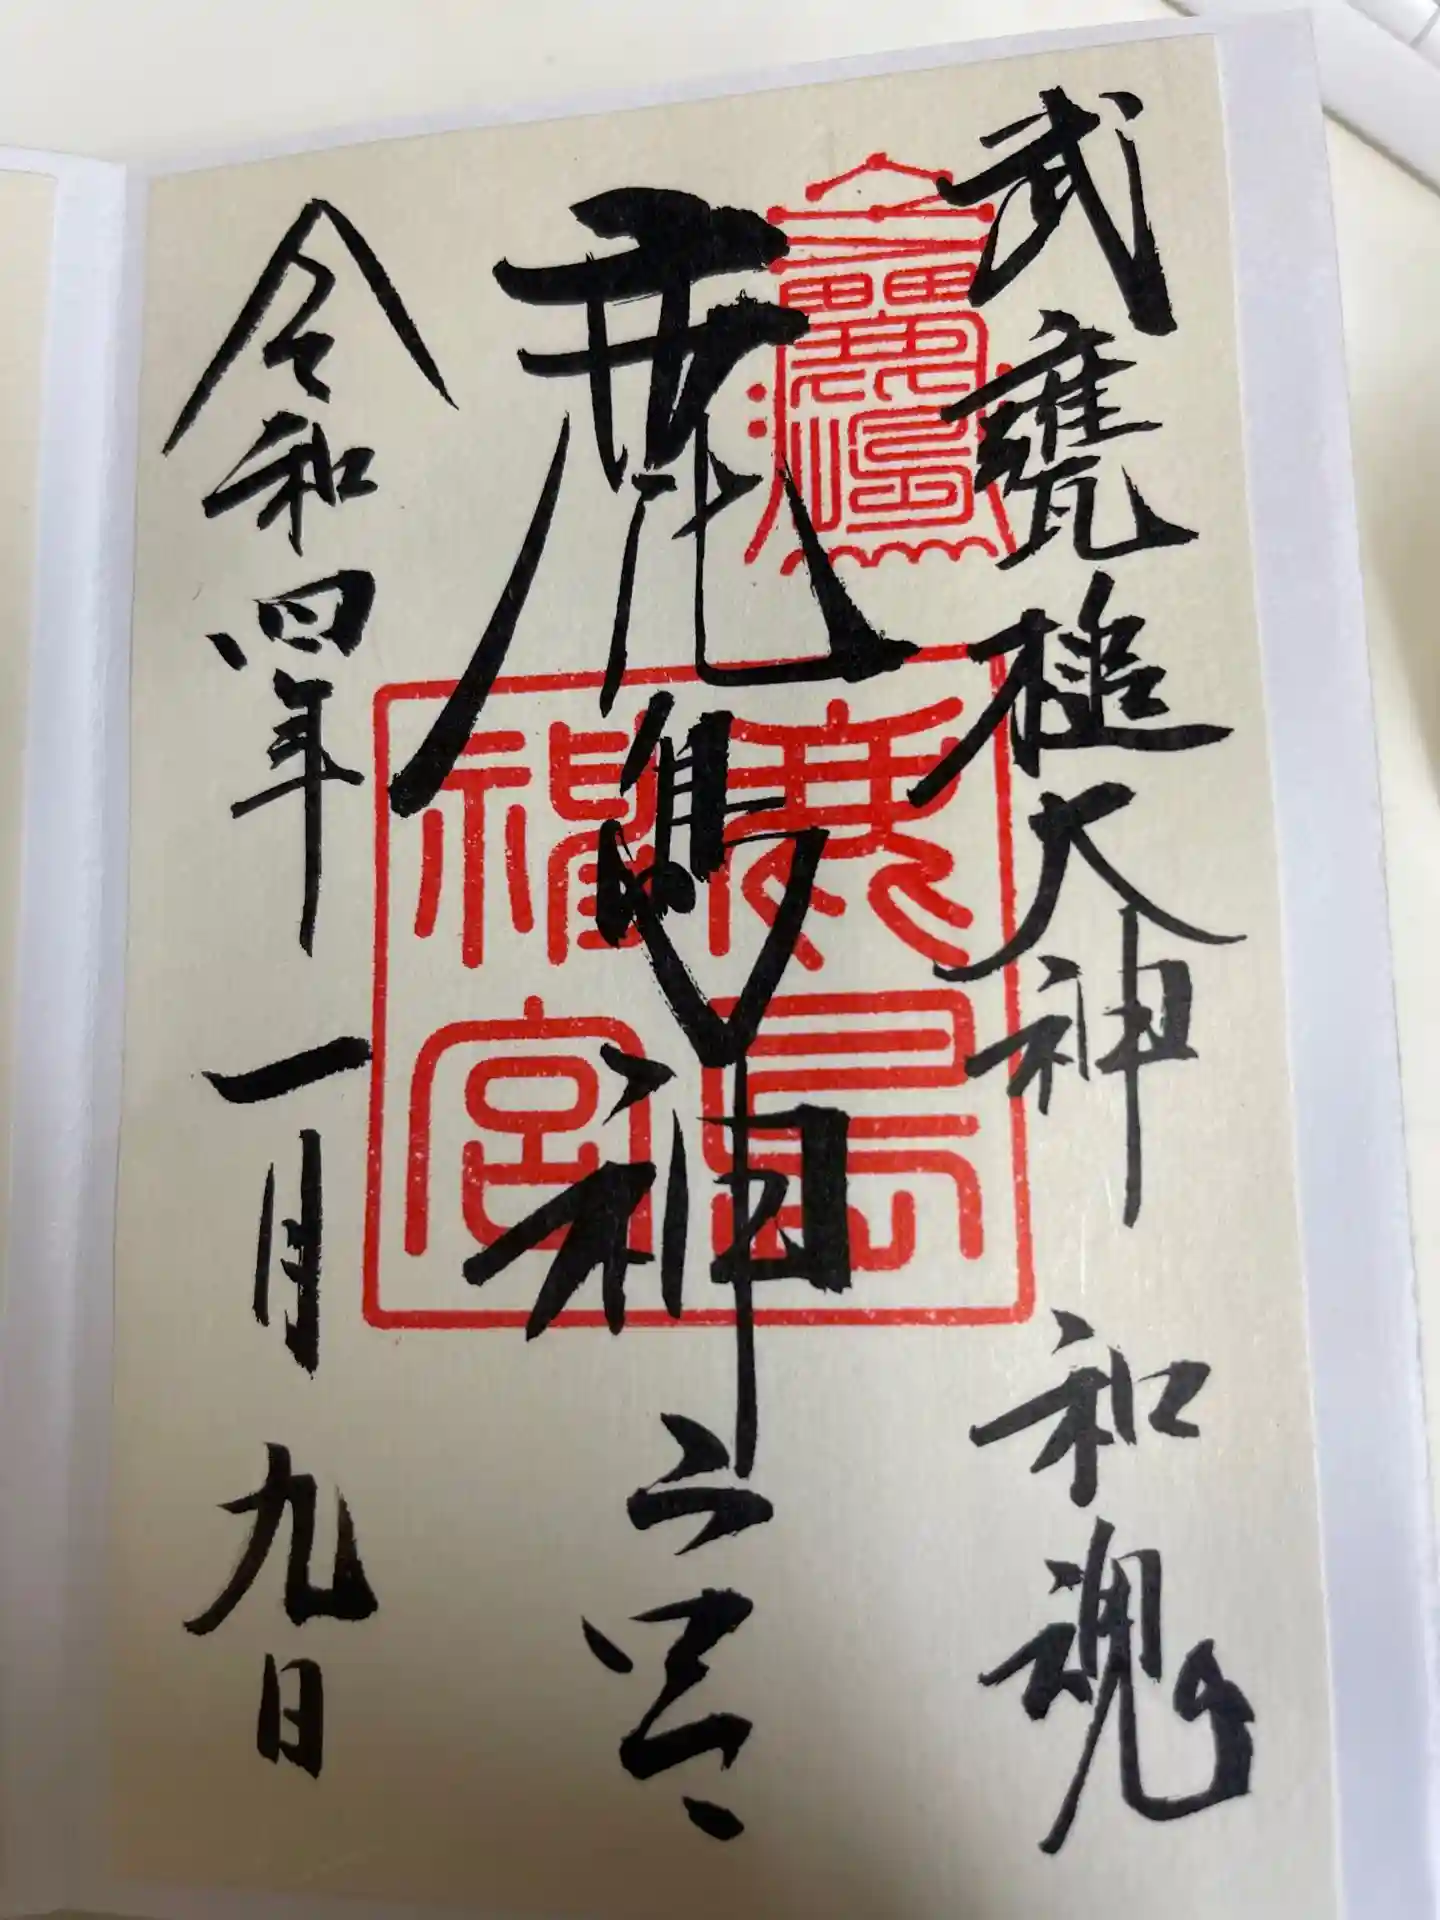 武甕槌大神 和魂
鹿島神宮
令和四年 一月 九日
鹿島
神宮